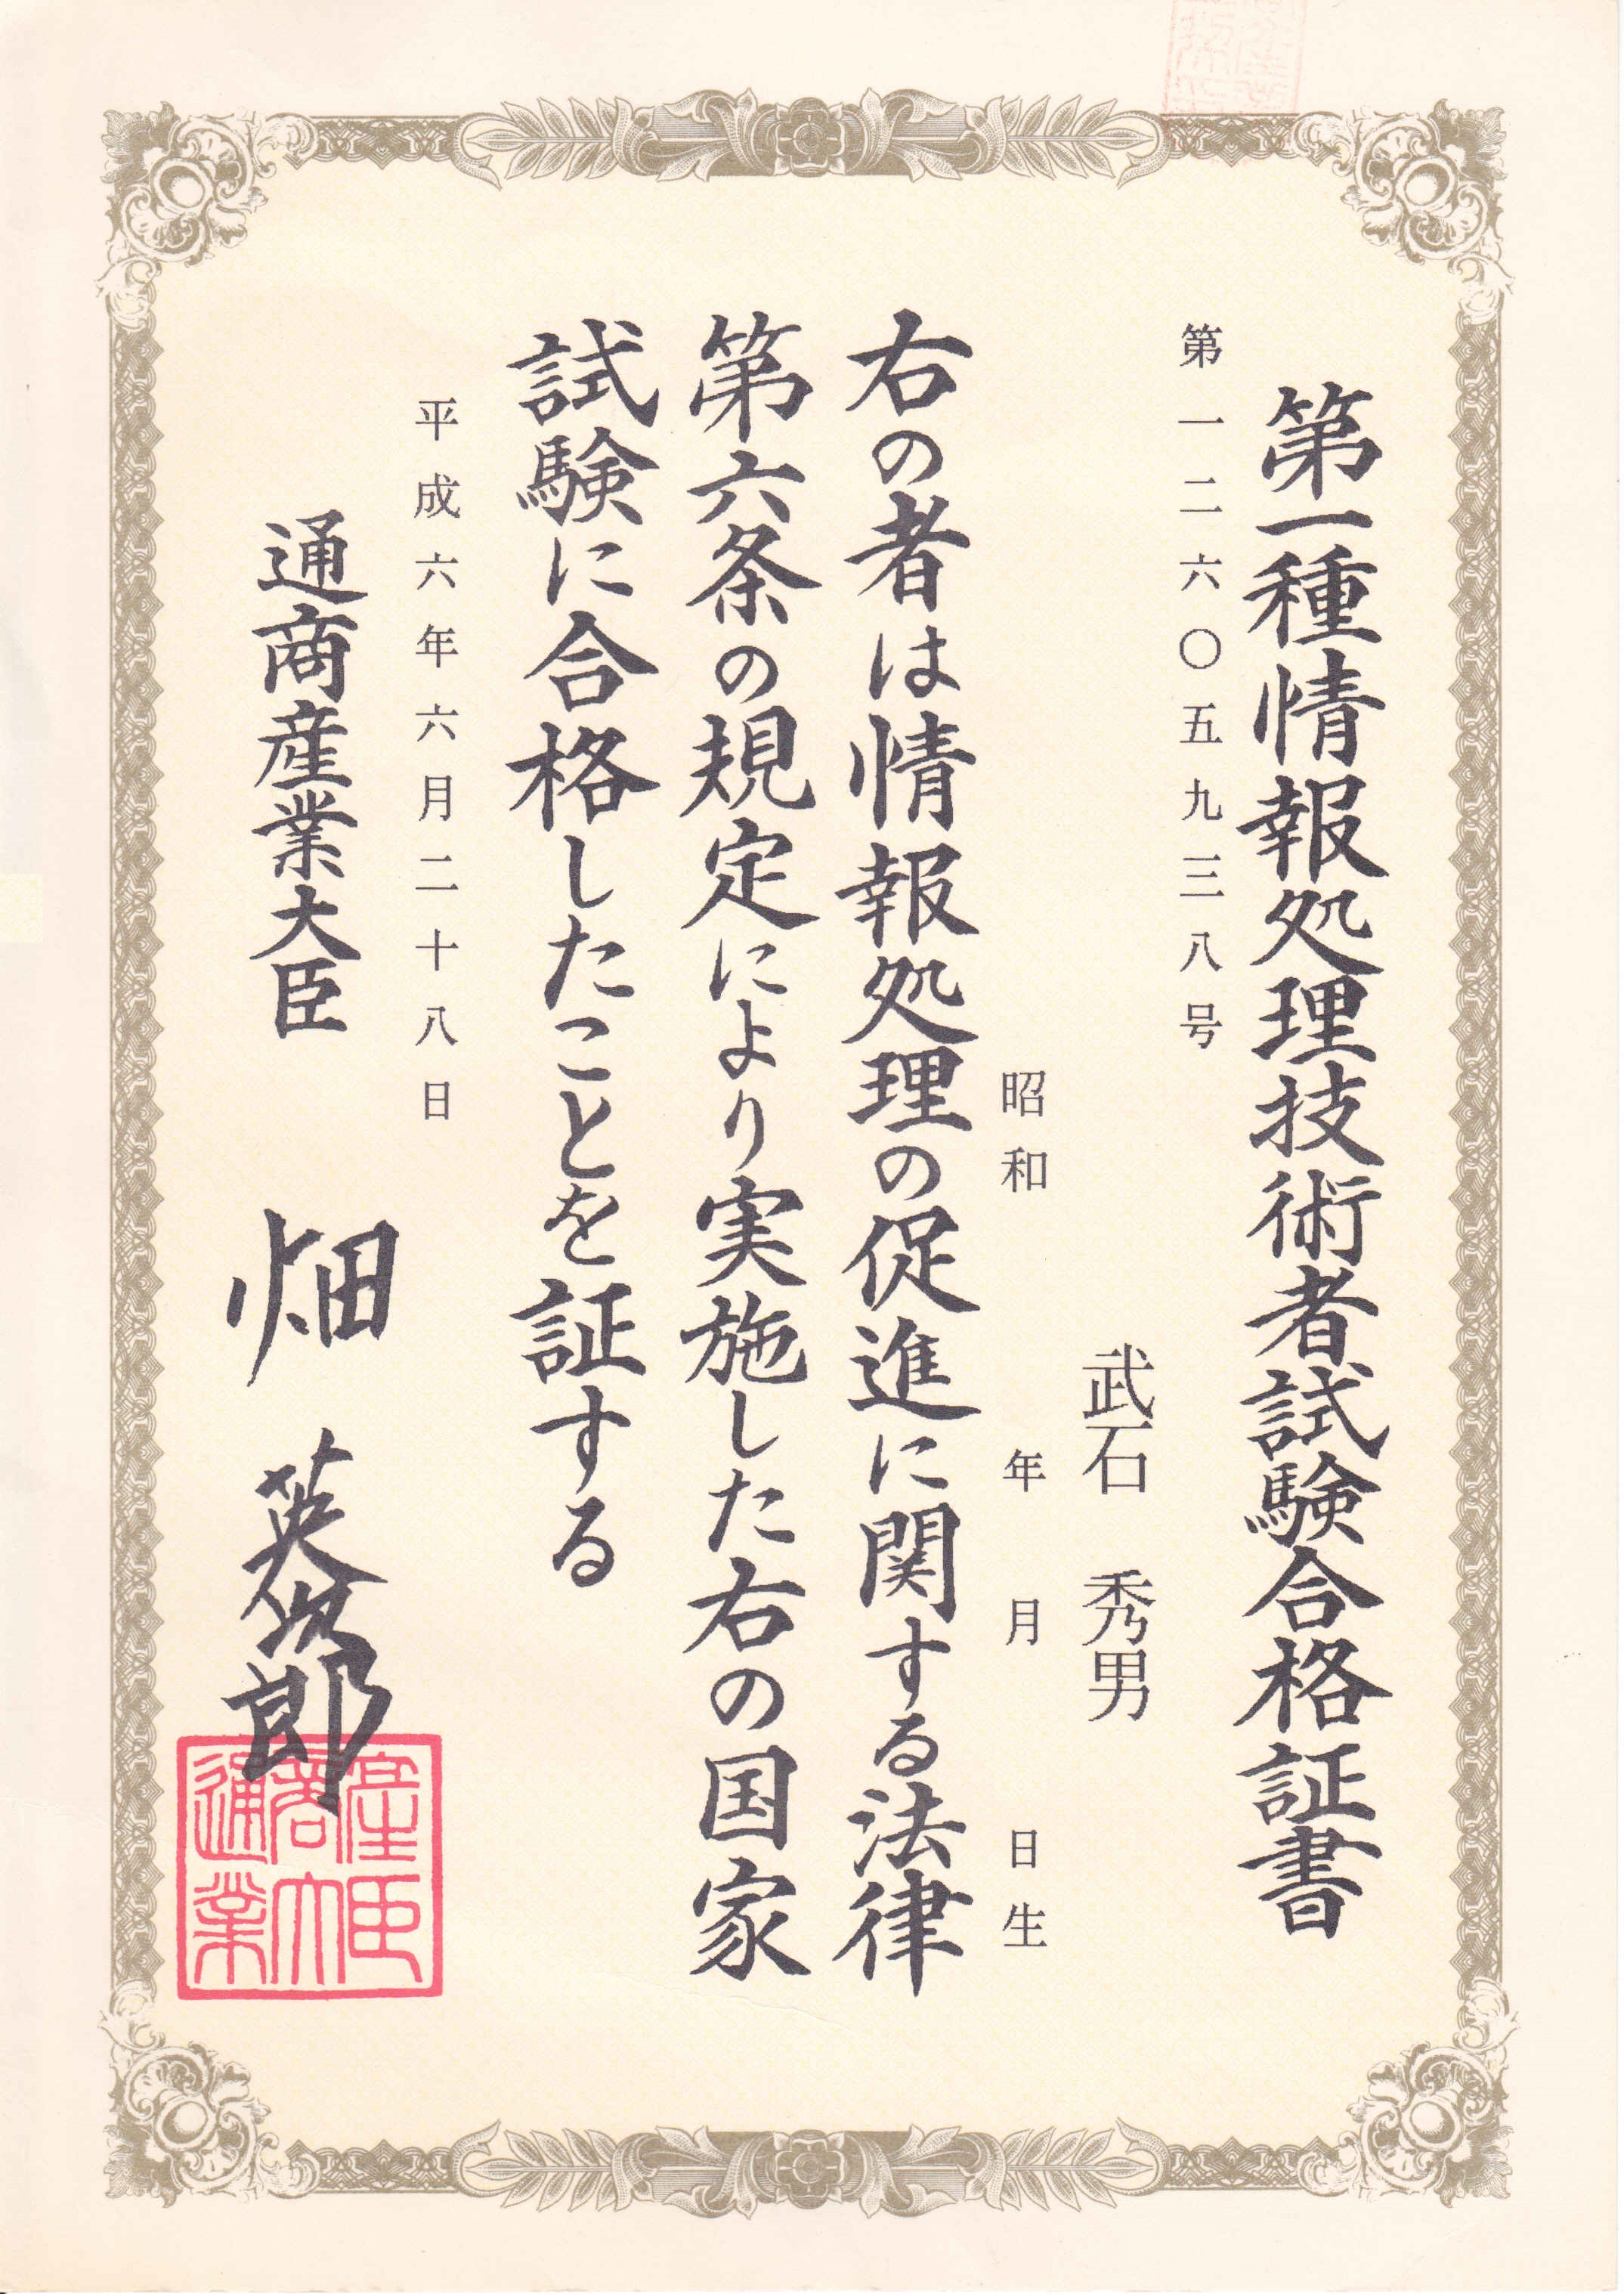 第一種情報処理技術者試験合格証書
第一二六〇五九三八号
武石 秀男
昭和 年 月 日生
右の者は情報処理の促進に関する法律
第六条の規定により実施した右の国家
試験に合格したことを証する
平成六年六月二十八日
通商産業大臣
畑 英次郎
通商産業大臣